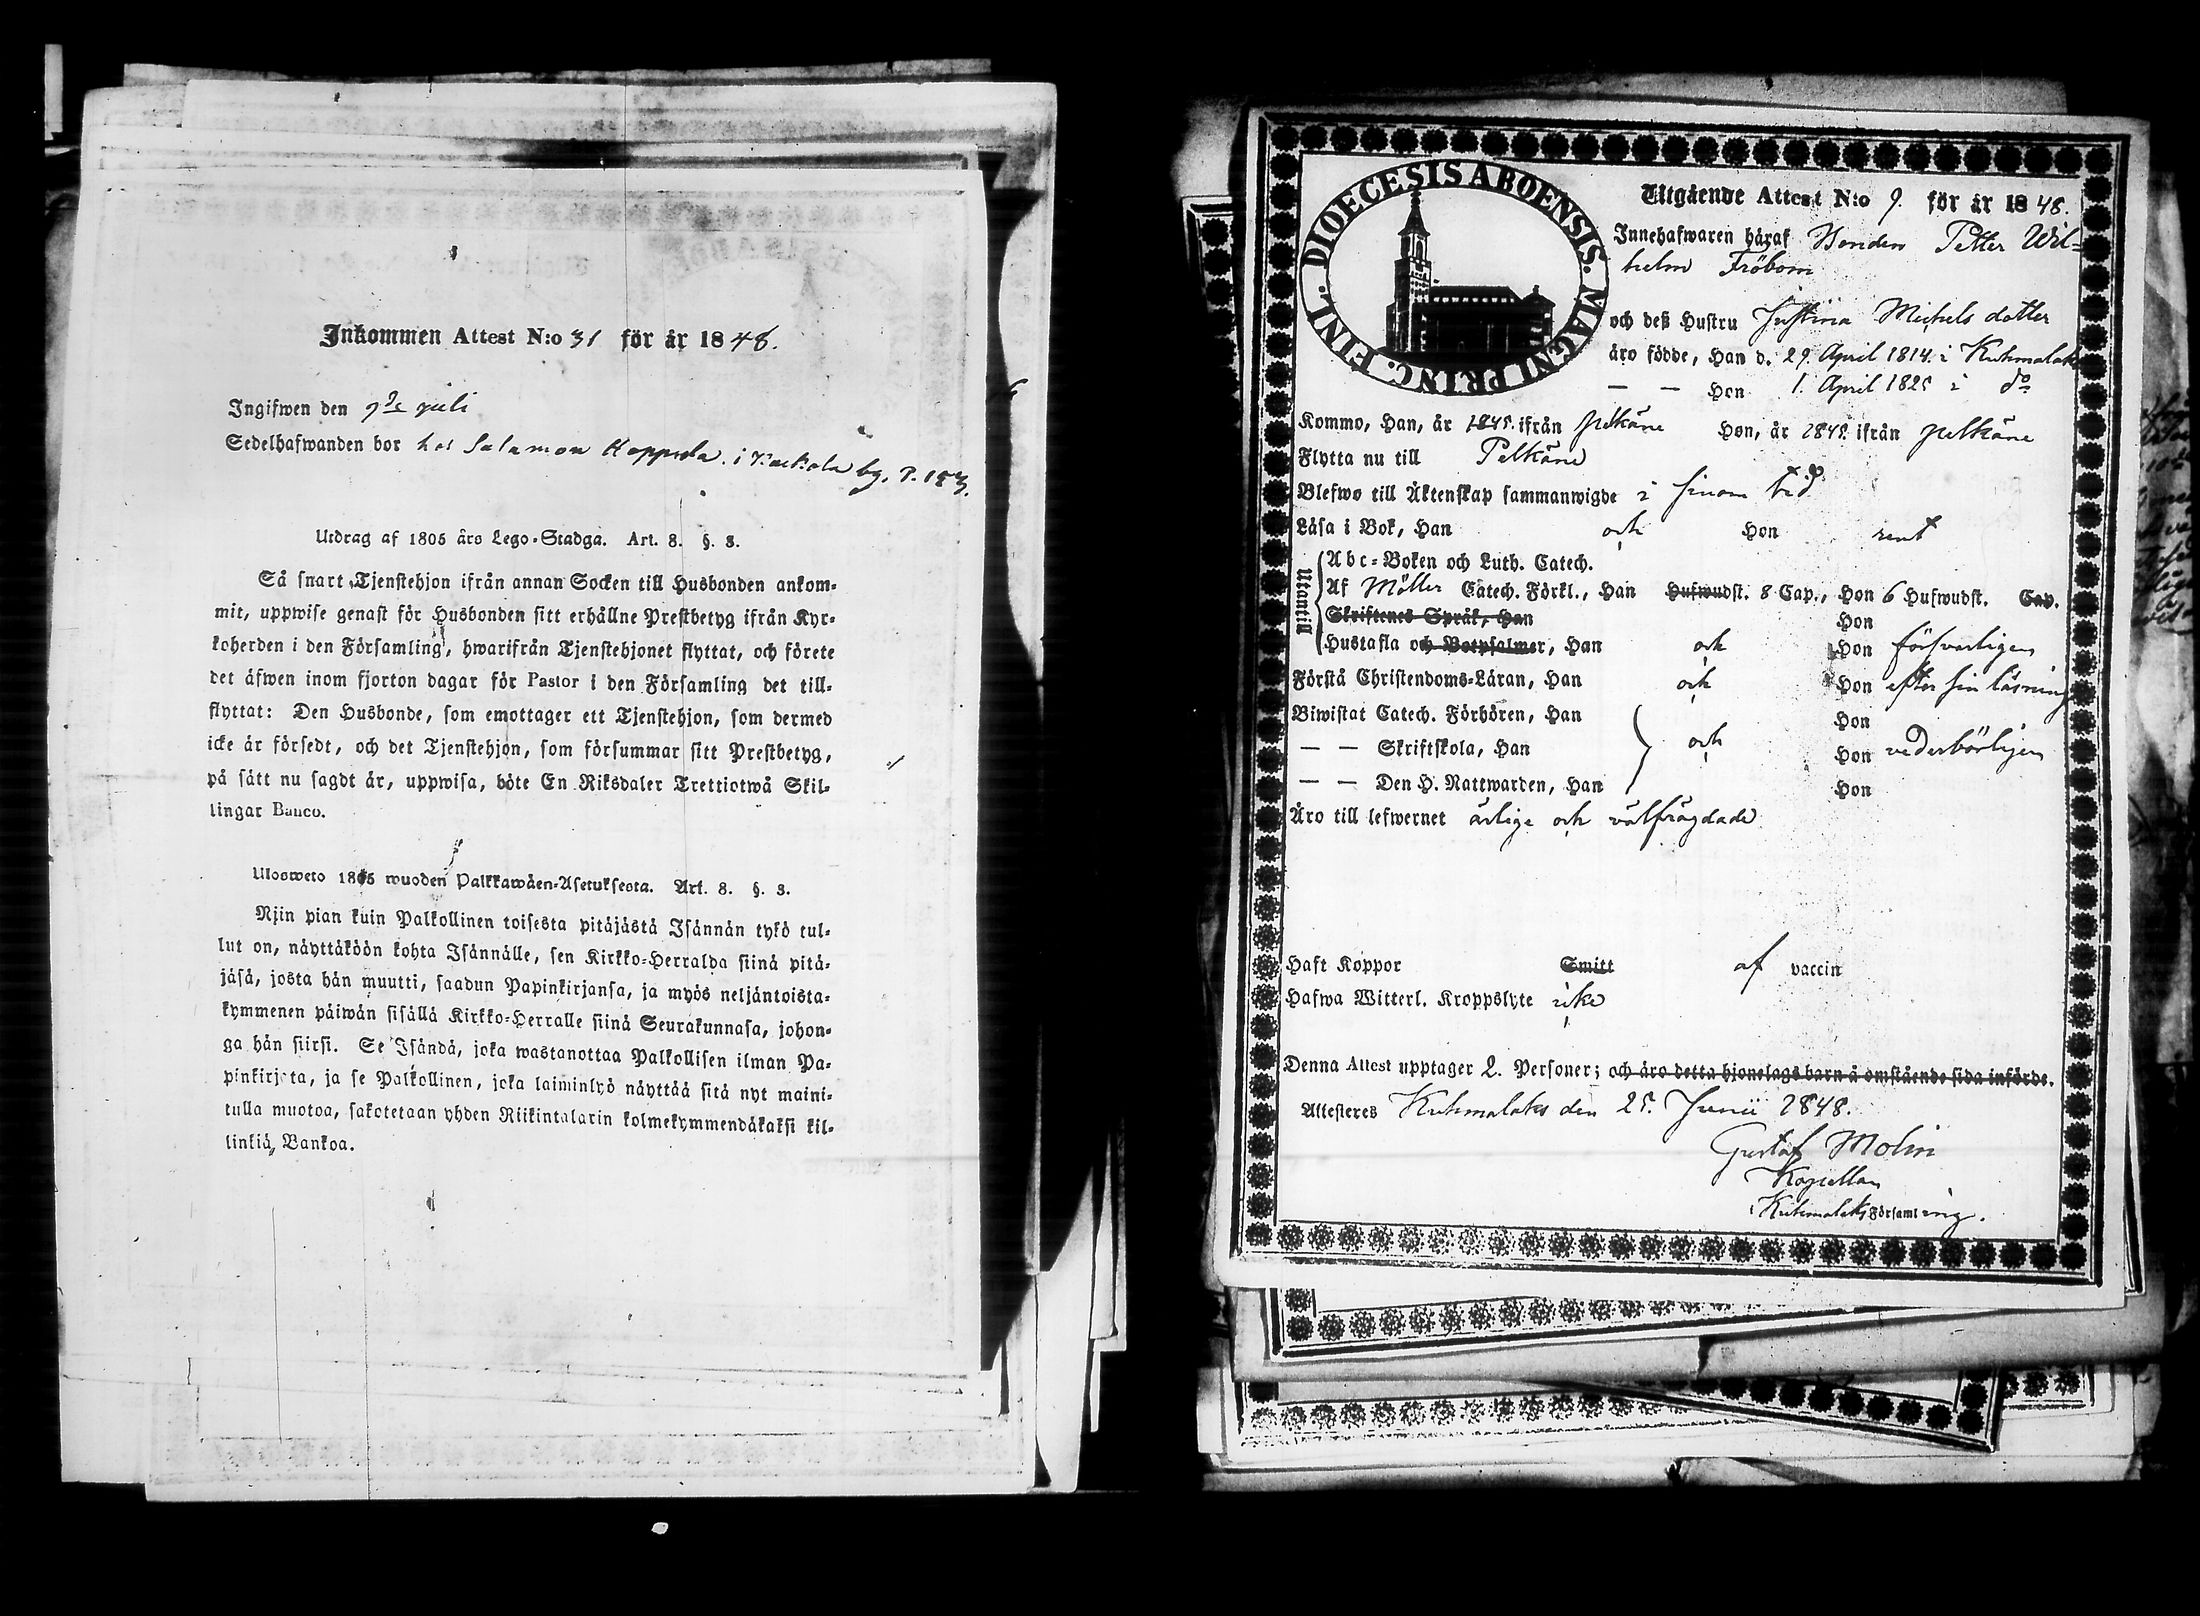 Inkommen Attest N:o 31 för år 1848.
Ingifwen den 9de juli
Sedelhafwanden bor hos Salamon Hoppula i Kaukola by, P. 183.
Utdrag af 1805 års Lego-Stadga. Art. 8. §. 3.
Så snart Tjenstehjon ifrån annan Socken till Husbonden ankom-
mit, uppwise genast för Husbonden sitt erhållne Prestbetyg ifrån Kyr-
koherden i den Församling, hwarifrån Tjenstehjonet flyttat, och förete
det äfwen inom fjorton dagar för Pastor i den Församling det till-
flyttat: Den Husbonde, som emottager ett Tjenstehjon, som dermed
icke är försedt, och det Tjenstehjon, som försummar sitt Prestbetyg,
på sätt nu sagdt är, uppwisa, böte En Riksdaler Trettiotwå Skil-
lingar Banco.
Ulosweto 1805 wuoden Palkkawäen-Asetuksesta. Art. 8. §. 3.
Njin pian kuin Palkollinen toisesta pitäjästä Isännän tykö tul-
lut on, näyttäköön kohta Isännälle, sen Kirkko-Herralda siinä pitä-
jäsä, josta hän muutti, saadun Papinkirjansa, ja myös neljäntoista-
kymmenen päiwän sisällä Kirkko-Herralle siinä Seurakunnasa, johon-
ga hän siirsi. Se Isändä, joka wastanottaa Palkollisen ilman Pa-
pinkirjata, ja se Palkollinen, joka laiminlyö näyttää sitä nyt maini-
tulla muotoa, sakotetaan yhden Riikintalarin kolmekymmendäkaksi kil-
linkiä, Bankoa.
DIOECESIS ABOENSIS. MAGNI PRINC. FINL.
Utgående Attest N:o 9. för år 1848.
Innehafwaren häraf Bonden Petter Wil-
helm Fröbom
och deß Hustru Justina Michels dotter
äro födde, Han d. 29. April 1814. i Kuhmalaks
— — Hon 1. April 1825 i do
Kommo, Han, år 1845. ifrån Pelkäne Hon, år 1848. ifrån Pelkäne
Flytta nu till Pelkäne
Blefwo till Äktenskap sammanwigde i sinom tid
Läsa i Bok, Han och Hon rent
Utantill
Abc-Boken och Luth. Catech.
Af Möller Catech. Förkl., Han Hufwudst. 8 Cap., Hon 6 Hufwudst. Cap.
Skriftenes Språk, Han Hon
Hustafla och Botpsalmer, Han och Hon försvarligen
Förstå Christendoms-Läran, Han och Hon efter sin läsning
Biwistat Catech. Förhören, Han Hon
— — Skriftskola, Han och Hon vederbörligen
— — Den H. Nattwarden, Han Hon
Äro till lefwernet ärlige och välfrägdade
Haft Koppor Smitt af vaccin
Hafwa Witterl. Kroppslyte icke
Denna Attest upptager 2. Personer; och äro detta hjonelags barn å omstående sida införde.
Attesteres Kuhmalaks den 25. Junii 1848.
Gustaf Molin
Kapellan
i Kuhmalaks Församling.